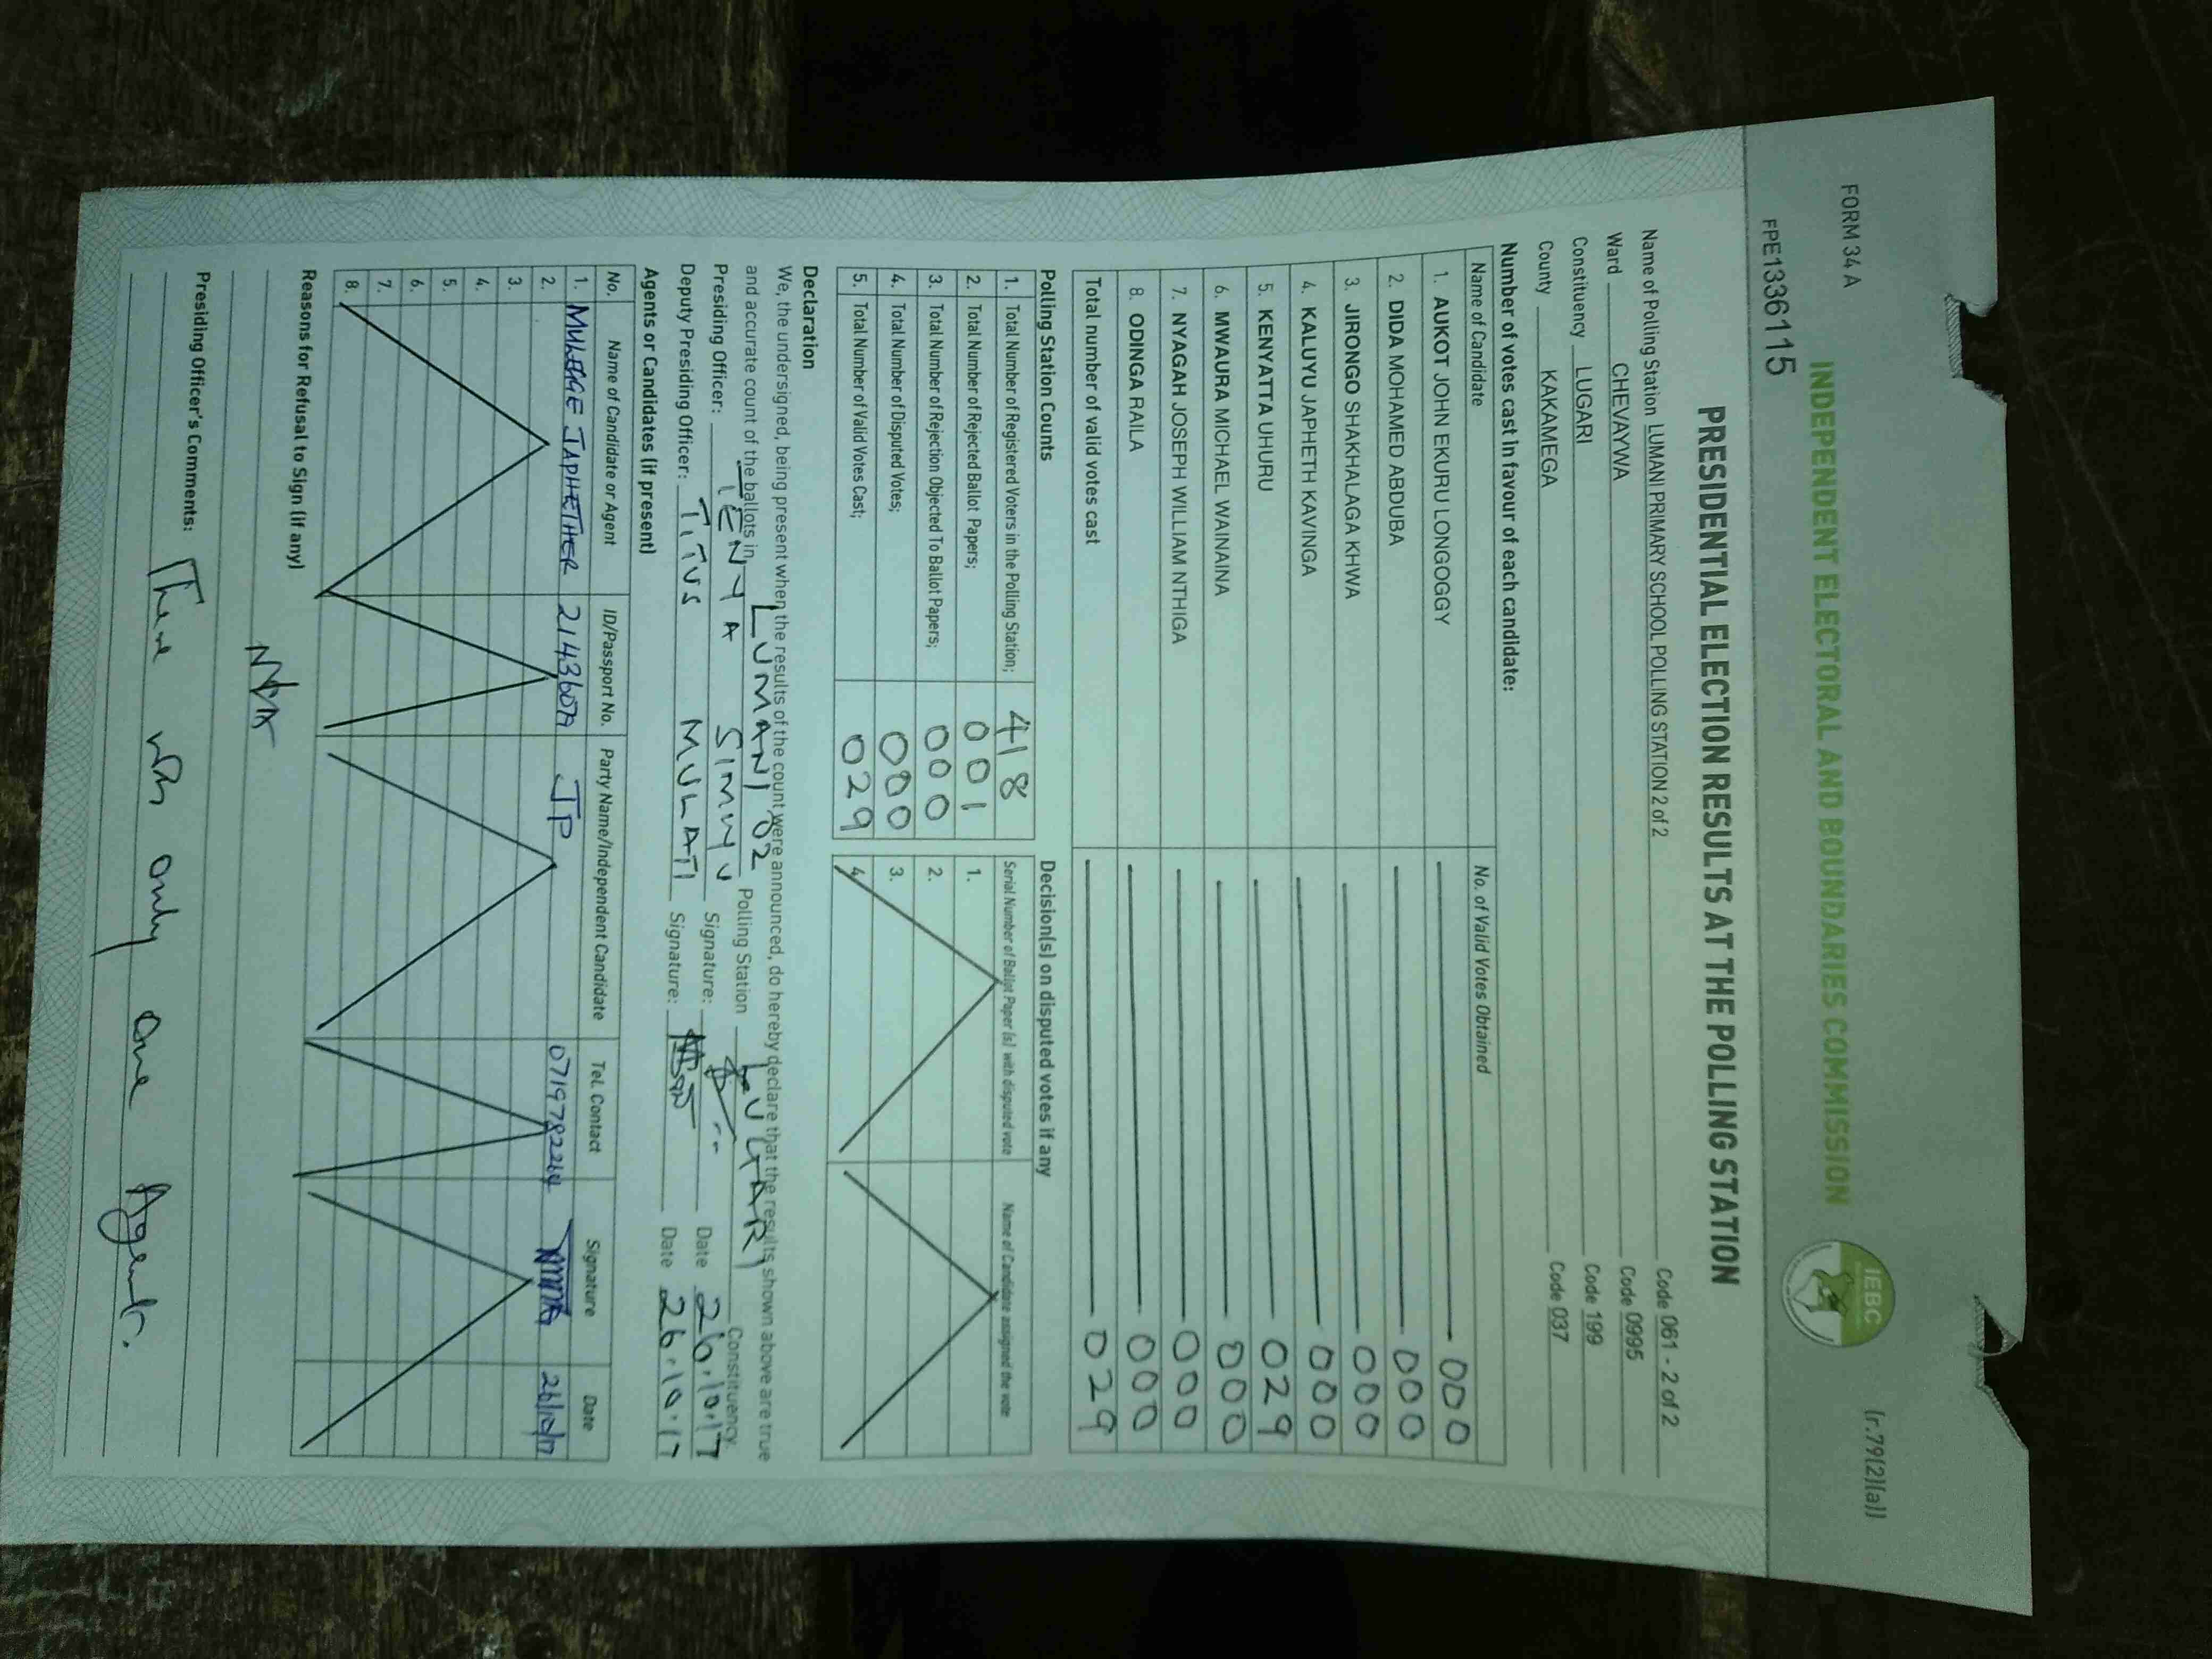 FORM 34 A
(r.79(2)(a))
INDEPENDENT ELECTORAL AND BOUNDARIES COMMISSION
IEBC
FPE1336115
PRESIDENTIAL ELECTION RESULTS AT THE POLLING STATION
Name of Polling Station LUMANI PRIMARY SCHOOL POLLING STATION 2 of 2 Code 061 - 2 of 2
Ward CHEVAYWA Code 0995
Constituency LUGARI Code 199
County KAKAMEGA Code 037
Number of votes cast in favour of each candidate:
Name of Candidate No. of Valid Votes Obtained
1. AUKOT JOHN EKURU LONGOGGY 000
2. DIDA MOHAMED ABDUBA 000
3. JIRONGO SHAKHALAGA KHWA 000
4. KALUYU JAPHETH KAVINGA 000
5. KENYATTA UHURU 029
6. MWAURA MICHAEL WAINAINA 000
7. NYAGAH JOSEPH WILLIAM NTHIGA 000
8. ODINGA RAILA 000
Total number of valid votes cast 029
Polling Station Counts
1. Total Number of Registered Voters in the Polling Station; 418
2. Total Number of Rejected Ballot Papers; 001
3. Total Number of Rejection Objected To Ballot Papers; 000
4. Total Number of Disputed Votes; 000
5. Total Number of Valid Votes Cast; 029
Decision(s) on disputed votes if any
Serial Number of Ballot Paper (s) with disputed vote Name of Candidate assigned the vote
1.
2.
3.
4.
Declaration
We, the undersigned, being present when the results of the count were announced, do hereby declare that the results shown above are true
and accurate count of the ballots in LUMANI 02 Polling Station LUGARI Constituency
Presiding Officer: TENYA SIMIYU Signature: Date 26.10.17
Deputy Presiding Officer: TITUS MULATI Signature: Date 26.10.17
Agents or Candidates (if present)
No. Name of Candidate or Agent ID/Passport No. Party Name/Independent Candidate Tel. Contact Signature Date
1. JAPHETHER JP 26/10/17
2.
3.
4.
5.
6.
7.
8.
Reasons for Refusal to Sign (if any)
N/A
Presiding Officer's Comments: There was only one Agent.